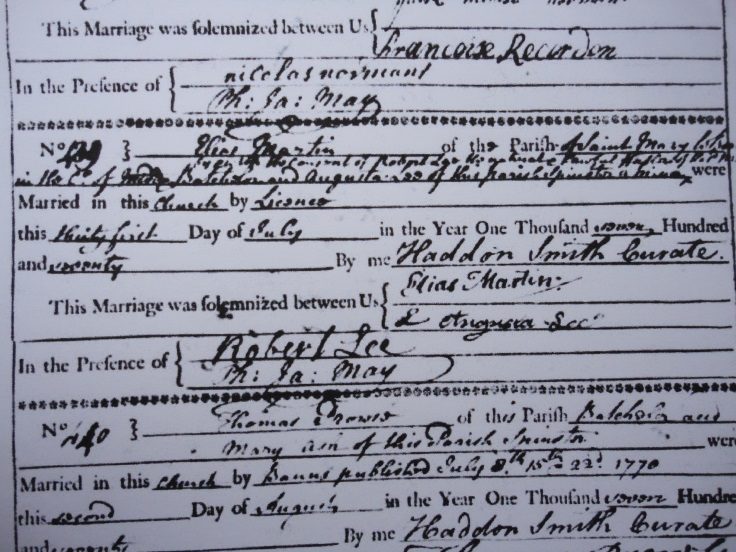 This Marriage was solemnized between Us
Francoise Recordon
In the Presence of
nicolas normant
Ph: Ja: May
No 439 Elias Martin of the Parish of Saint Mary
in the Co of Middx Batchelor and Augusta Lee of this parish Spinster a minor were
Married in this Church by Licence
this thirty first Day of July in the Year One Thousand seven Hundred
and seventy By me Haddon Smith Curate.
This Marriage was solemnized between Us
Elias Martin
Augusta Lee
In the Presence of
Robert Lee
Ph: Ja: May
No 440 Thomas of this Parish Batchelor and
Mary of this Parish Spinster were
Married in this Church by Banns published July 8th 15th 22d 1770
this second Day of August in the Year One Thousand seven Hundred
and seventy By me Haddon Smith Curate